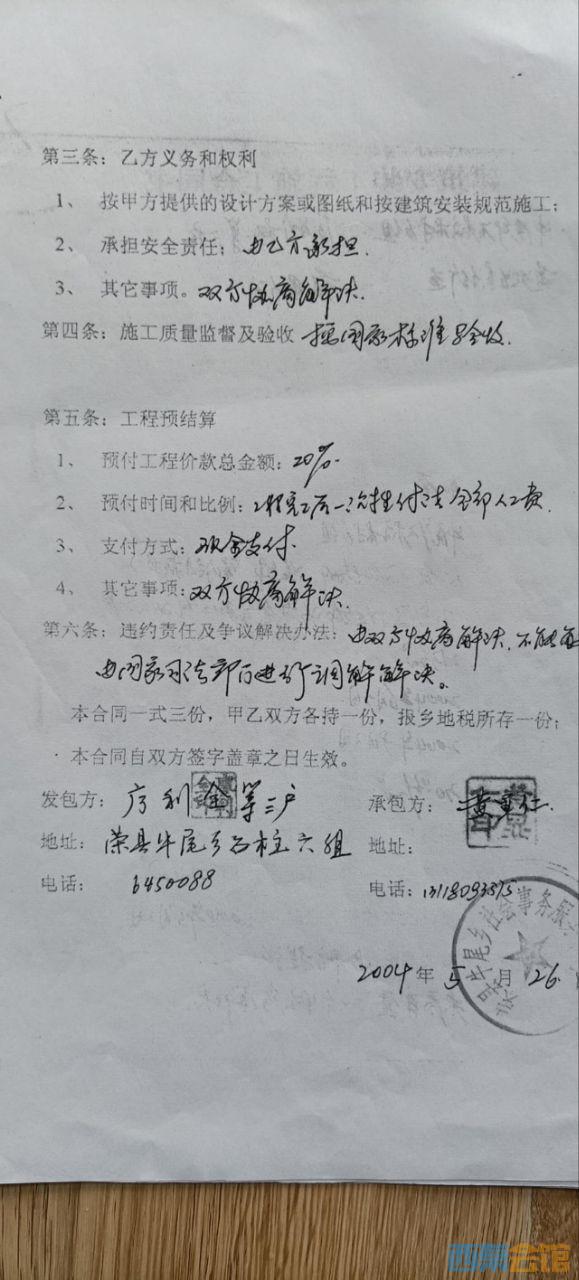 第三条：乙方义务和权利
1、 按甲方提供的设计方案或图纸和按建筑安装规范施工；
2、 承担安全责任；由乙方承担.
3、 其它事项。双方协商解决.
第四条：施工质量监督及验收 按国家标准验收.
第五条：工程预结算
1、 预付工程价款总金额：20%.
2、 预付时间和比例：工程完工后一次性付清全部人工费.
3、 支付方式：现金支付.
4、 其它事项：双方协商解决.
第六条：违约责任及争议解决办法：由双方协商解决.不能
由国家司法部门进行调解解决。
本合同一式三份，甲乙双方各持一份，报乡地税所存一份；
本合同自双方签字盖章之日生效。
发包方： 利金等三户 承包方： 黄
地址： 荣县牛尾乡石柱六组 地址：
电话： 6450088 电话：
牛尾乡社会事务服
2004年5月26
西泵会馆